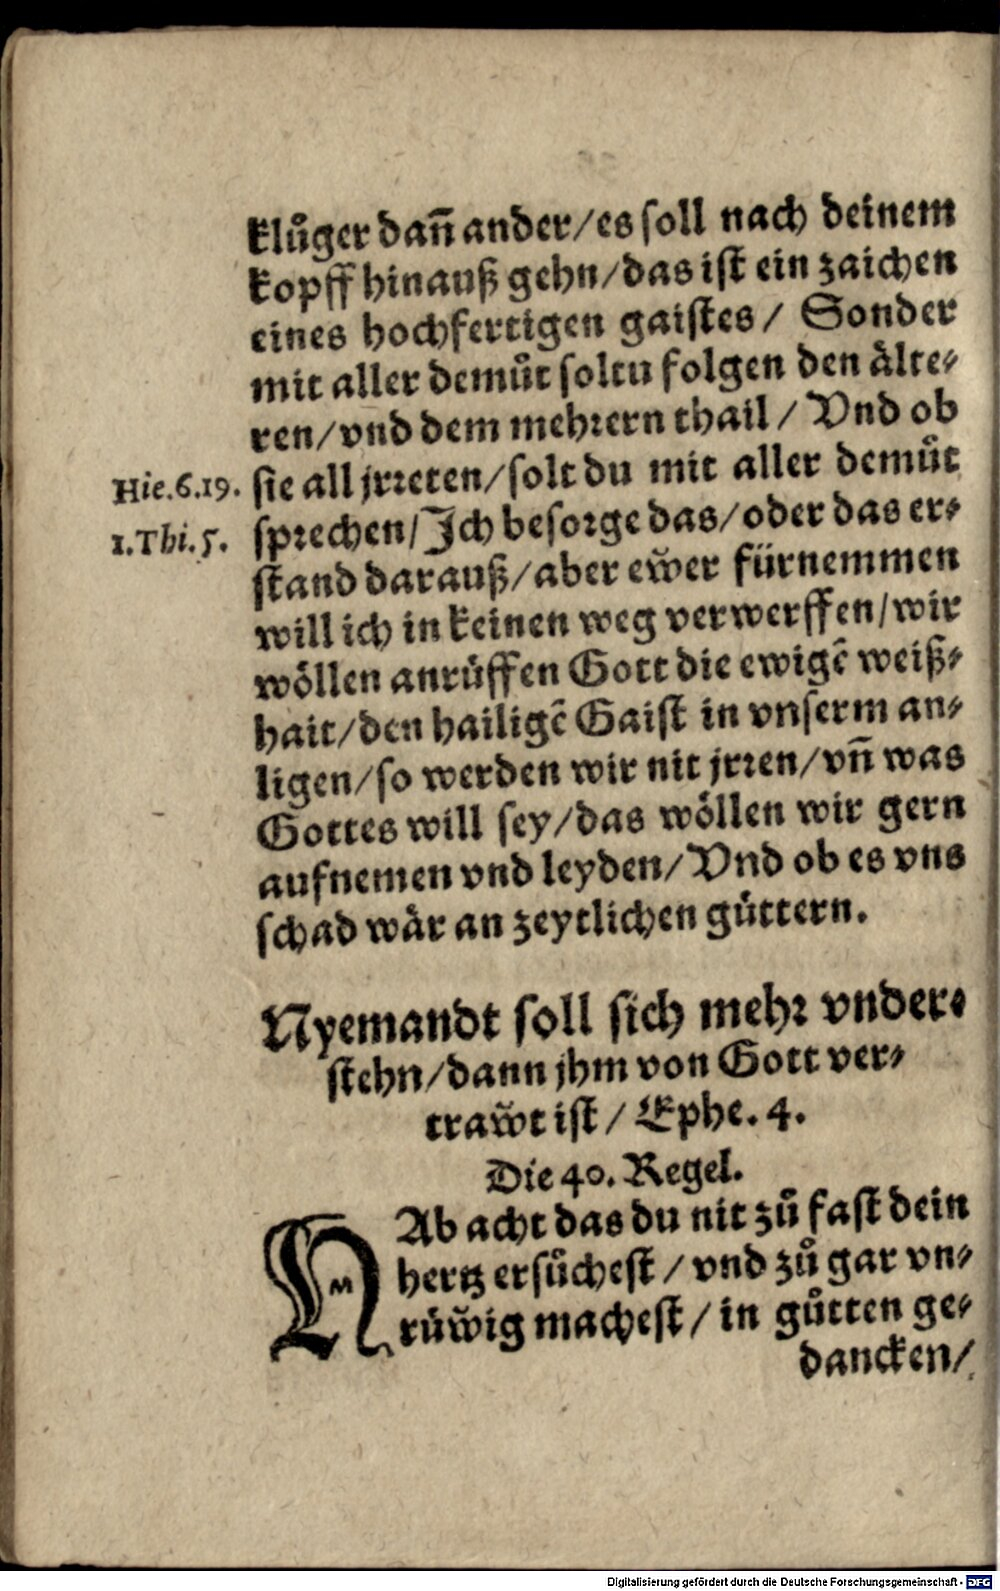 klůger dañ ander/es soll nach deinem
kopff hinauß gehn/das ist ein zaichen
eines hochfertigen gaistes/ Sonder
mit aller demůt soltu folgen den ältе⸗
ren/vnd dem mehrern thail/ Vnd ob
Hie.6.19. sie all jrreten/solt du mit aller demůt
1.Thi.5. sprechen/Ich besorge das/oder das er⸗
stand darauß/aber ew̌er fürnemmen
will ich in keinen weg verwerffen/wir
wöllen anrůffen Gott die ewigẽ weiß⸗
hait/den hailigẽ Gaist in vnserm an⸗
ligen/so werden wir nit jrren/vñ was
Gottes will sey/das wöllen wir gern
aufnemen vnd leyden/Vnd ob es vns
schad wär an zeytlichen güttern.
Nyemandt soll sich mehr vnder⸗
stehn/dann jhm von Gott ver⸗
traw̌t ist/ Ephe. 4.
Die 40. Regel.
NAb acht das du nit zů fast dein
hertz ersůchest/vnd zů gar vn⸗
růw̌ig machest/in gůtten ge⸗
dancken/
Digitalisierung gefördert durch die Deutsche Forschungsgemeinschaft - DFG